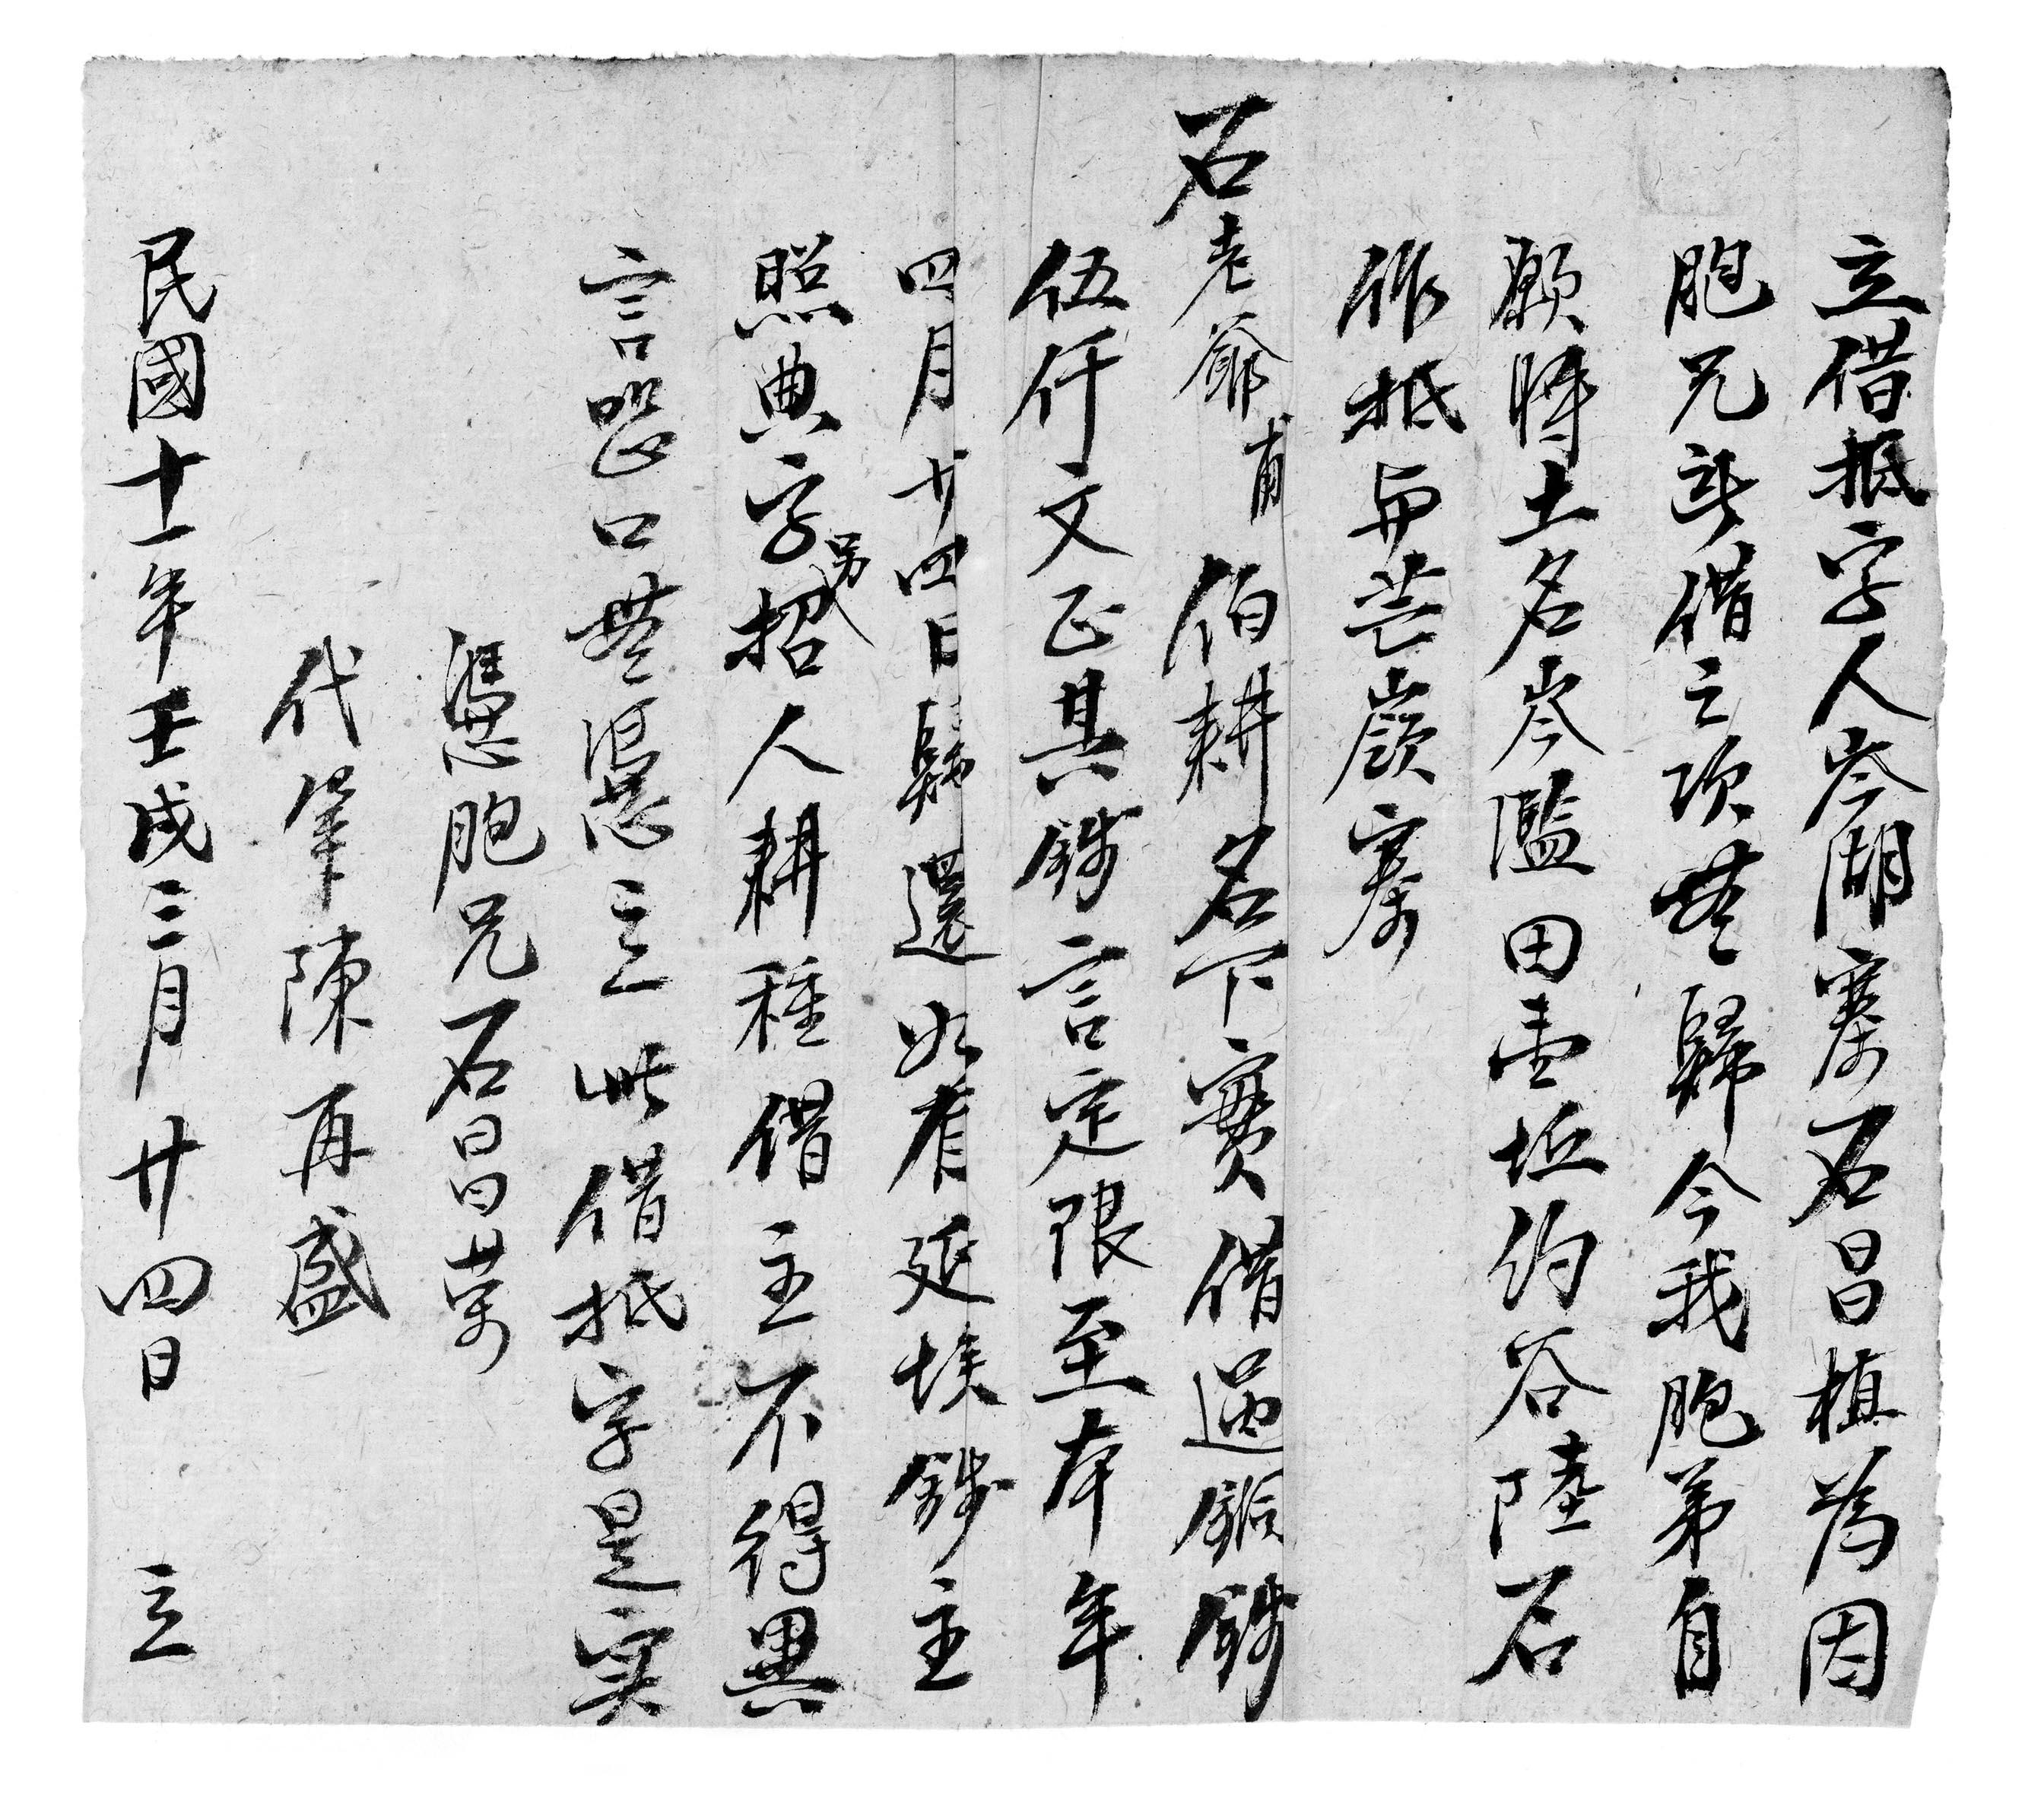 立借抵字人岑湖寨石昌植為因
胞兄所借之項無歸今我胞弟自
願將土名岑濫田壹坵約谷陸石
作抵与芒嶺寨
石老爺甫伯耕名下實借過銅錢
伍仟文正其錢言定限至本年
四月廿四日歸還如有延埃錢主
照典字另招人耕種借主不得異
言恐口無憑立此借抵字是实
憑胞兄石昌萬
代筆陳再盛
民國十一年壬戌三月廿四日立